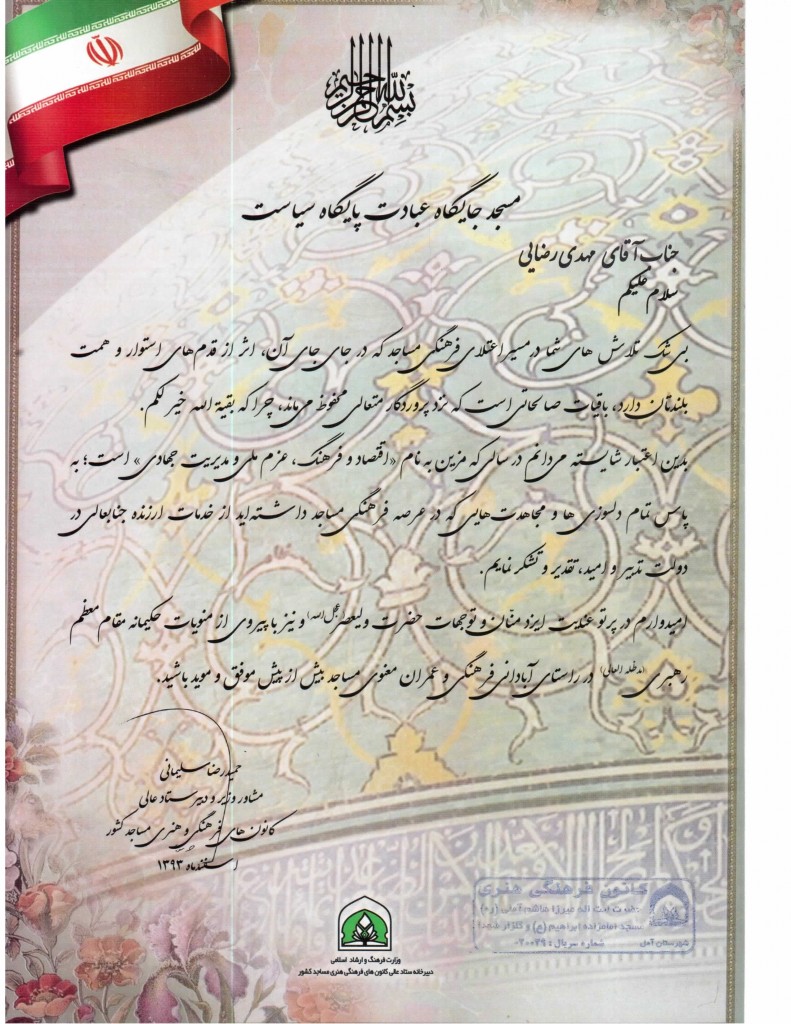 بسم الله الرحمن الرحیم
مسجد جایگاه عبادت پایگاه سیاست
جناب آقای مهدی رضایی
سلام علیکم
بی شک تلاش های شما در مسیر اعتلای فرهنگی مساجد که در جای جای آن، اثر از قدم های استوار و همت
بلندتان دارد، باقیات صالحاتی است که نزد پروردگار متعالی محفوظ می‌ماند، چرا که بقیة الله خیر لکم.
بدین اعتبار شایسته می‌دانم در سالی که مزین به نام «اقتصاد و فرهنگ، عزم ملی و مدیریت جهادی» است؛ به
پاس تمام دلسوزی ها و مجاهدت هایی که در عرصه فرهنگی مساجد داشته‌اید از خدمات ارزنده جنابعالی در
دولت تدبیر و امید، تقدیر و تشکر نمایم.
امیدوارم در پرتو عنایت ایزد منّان و توجهات حضرت ولیعصر(عجل الله) و نیز با پیروی از منویات حکیمانه مقام معظم
رهبری (مدظله العالی) در راستای آبادانی فرهنگی و عمران معنوی مساجد بیش از پیش موفق و موید باشید.
حمیدرضا سلیمانی
مشاور وزیر و دبیر ستاد عالی
کانون های فرهنگی و هنری مساجد کشور
اسفندماه ۱۳۹۳
کانون فرهنگی هنری
حضرت آیت اله میرزا هاشم آملی (ره)
مسجد امامزاده ابراهیم (ع) و گلزار شهدا
شهرستان آمل
شماره سریال: ۰۲۰۰۲۹
وزارت فرهنگ و ارشاد اسلامی
دبیرخانه ستاد عالی کانون های فرهنگی هنری مساجد کشور